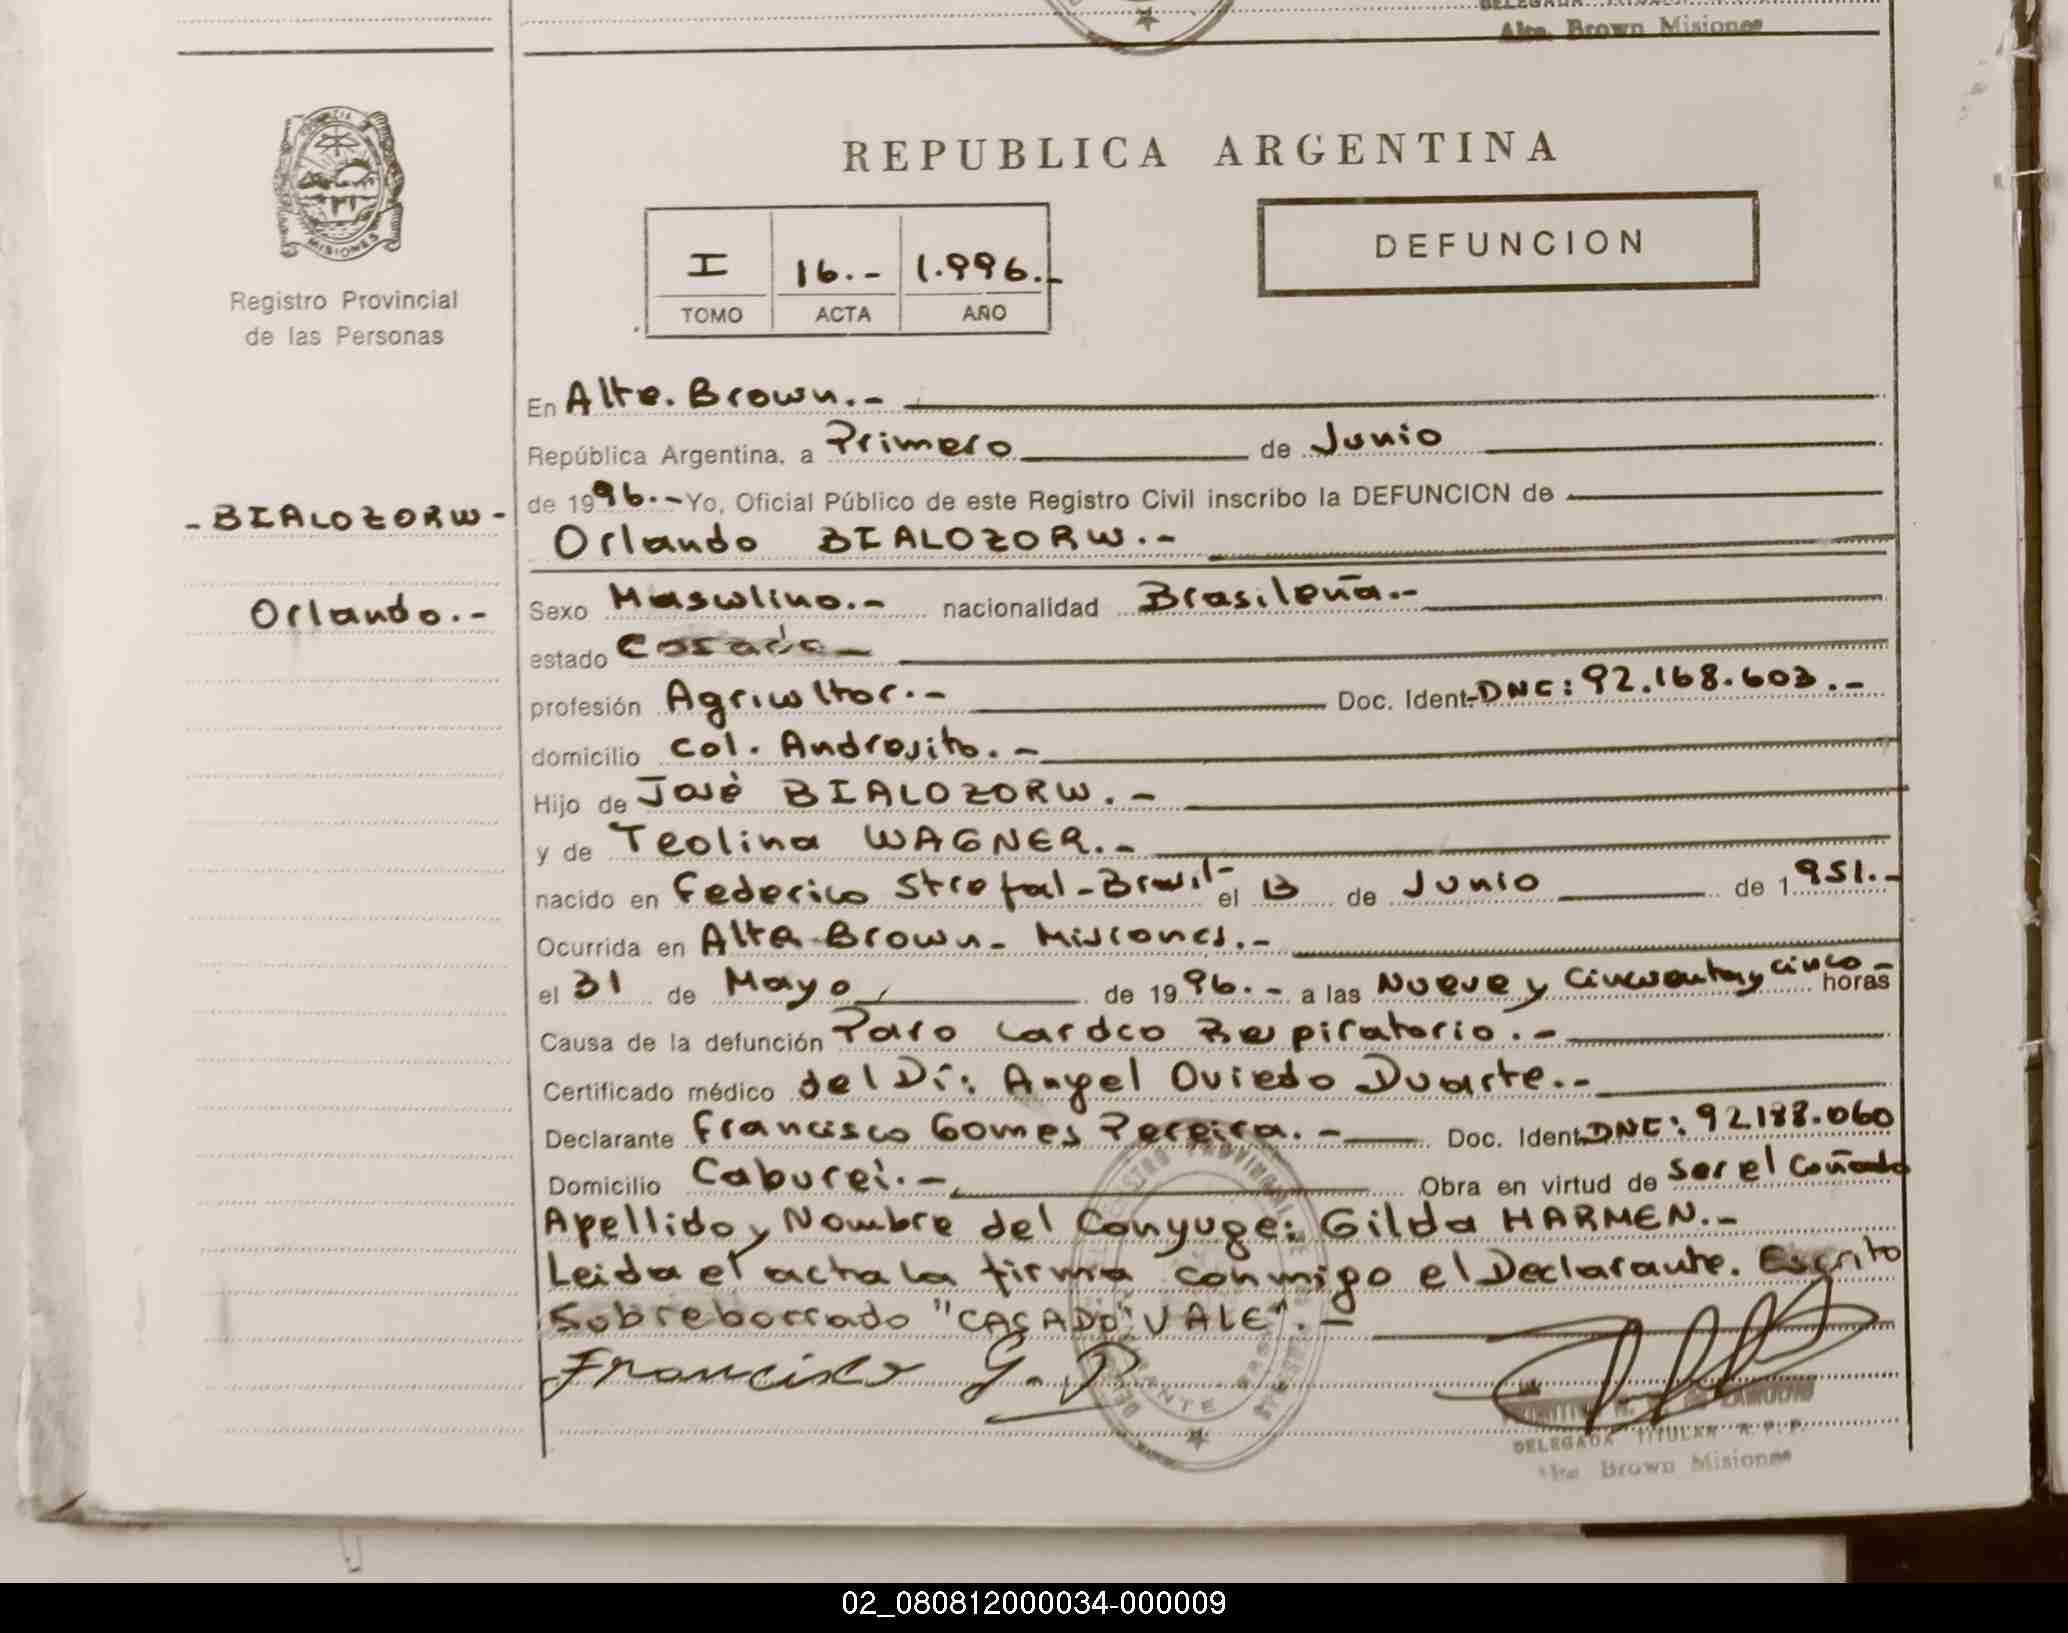 Alte. Brown Misiones
PROVINCIA
MISIONES
Registro Provincial
de las Personas
REPUBLICA ARGENTINA
DEFUNCION
I 16.- 1.996.-
TOMO ACTA AÑO
En Alte. Brown.-
República Argentina, a Primero de Junio
de 1996.- Yo, Oficial Público de este Registro Civil inscribo la DEFUNCION de
- BIALOZORW -
Orlando BIALOZORW.-
Orlando.-
Sexo Masculino.- nacionalidad Brasileña.-
estado Casado-
profesión Agricultor.- Doc. Ident. DNE: 92.168.603.-
domicilio Col. Andresito.-
Hijo de José BIALOZORW.-
y de Teolina WAGNER.-
nacido en Federico Strofal - Brasil- el 13 de Junio de 1951.-
Ocurrida en Alte Brown - Misiones.-
el 31 de Mayo de 1996.- a las Nueve y Cincuenta y cinco - horas
Causa de la defunción Paro Cardco Respiratorio.-
Certificado médico del Dr: Angel Oviedo Duarte.-
Declarante Francisco Gomes Pereira.- Doc. Ident. DNE: 92.188.060
Domicilio Cabureí.- Obra en virtud de ser el Cuñado
Apellido y Nombre del Conyuge: Gilda HARMEN.-
Leida el acta la firma conmigo el Declarante. Escrito
Sobreborrado "CASADO" VALE".-
Francisco G. P
DELEGADA TITULAR R.P.P.
Alte Brown Misiones
02_080812000034-000009